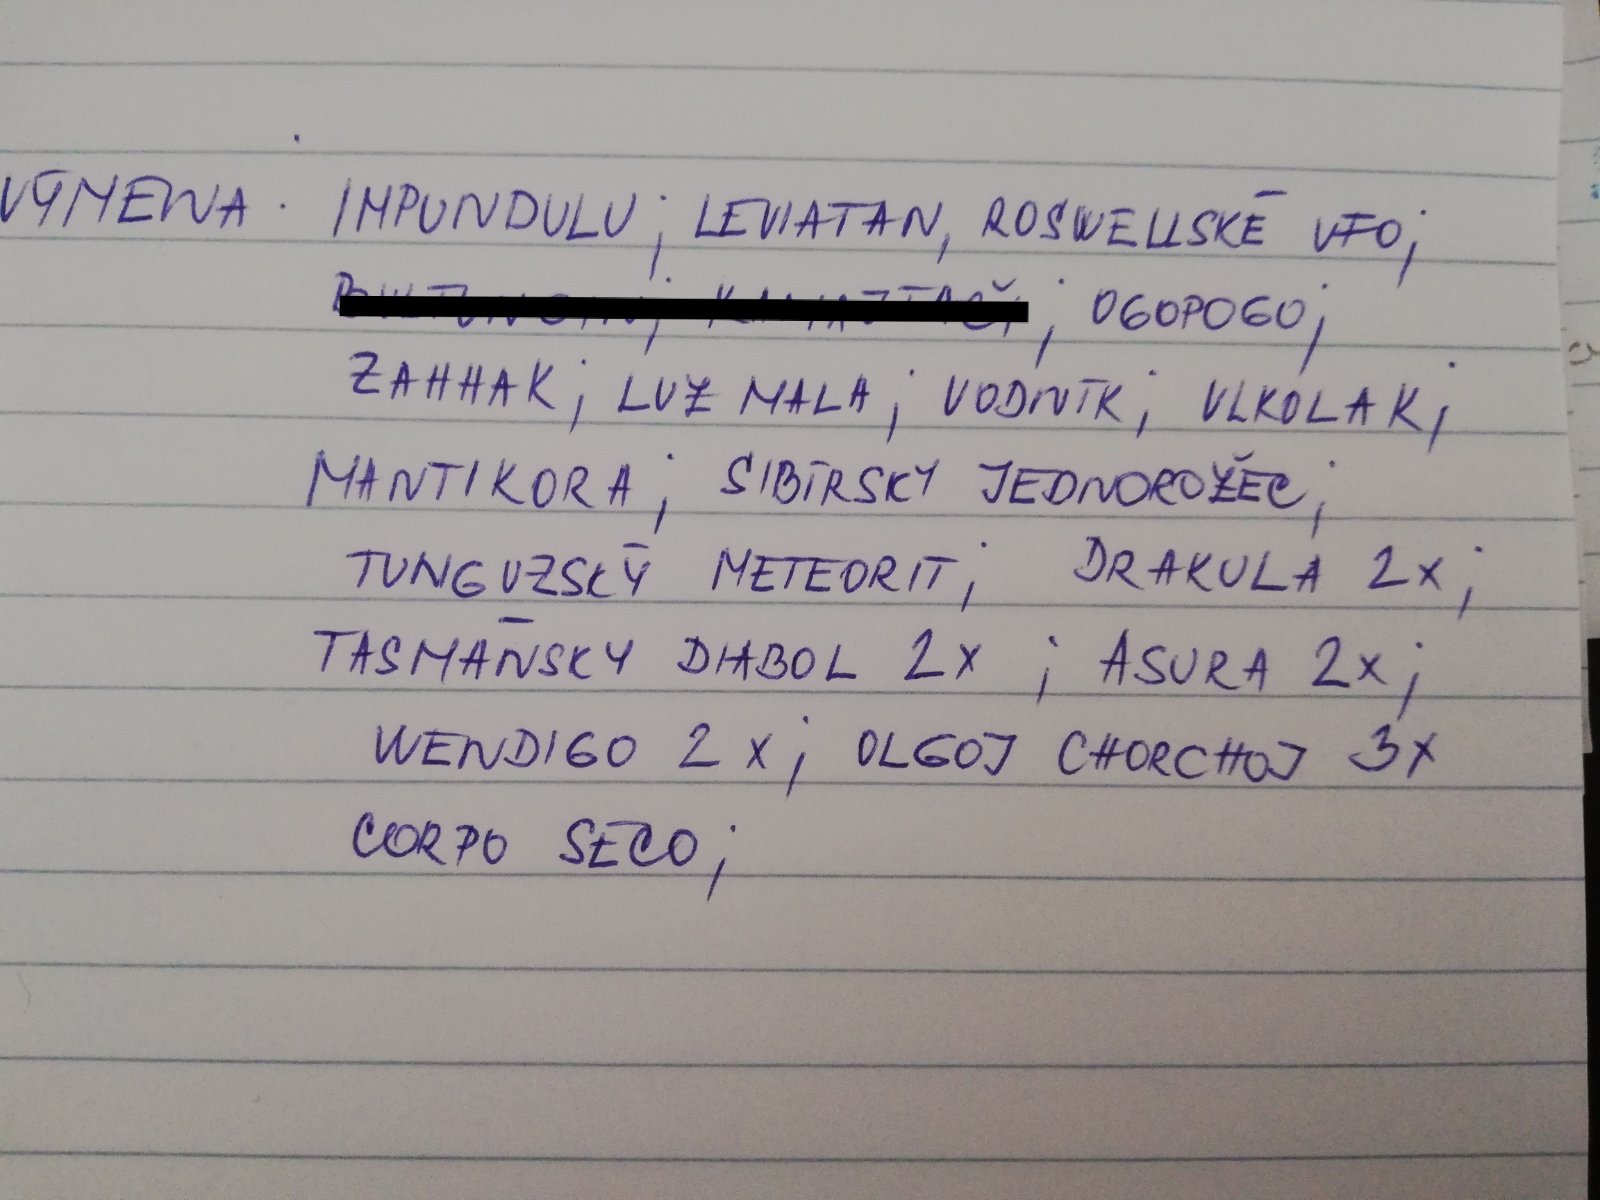 VÝMENA: IMPUNDULU; LEVIATAN, ROSWELLSKÉ UFO;
; OGOPOGO;
ZAHHAK; LUZ MALA; VODNÍK; VLKOLAK;
MANTIKORA; SIBÍRSKY JEDNOROŽEC;
TUNGUZSKÝ METEORIT; DRAKULA 2x;
TASMÁNSKY DIABOL 2x; ASURA 2x;
WENDIGO 2x; OLGOJ CHORCHOJ 3x
CORPO SECO;